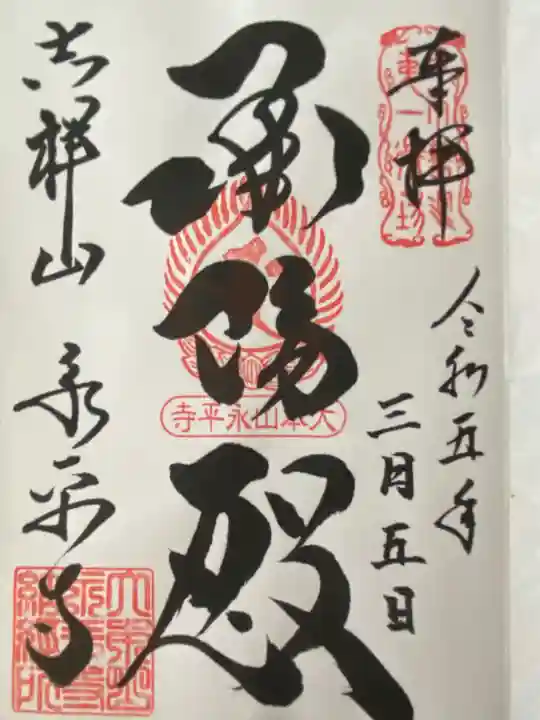 奉拝
令和五年
三月五日
承陽殿
大本山永平寺
吉祥山 永平寺